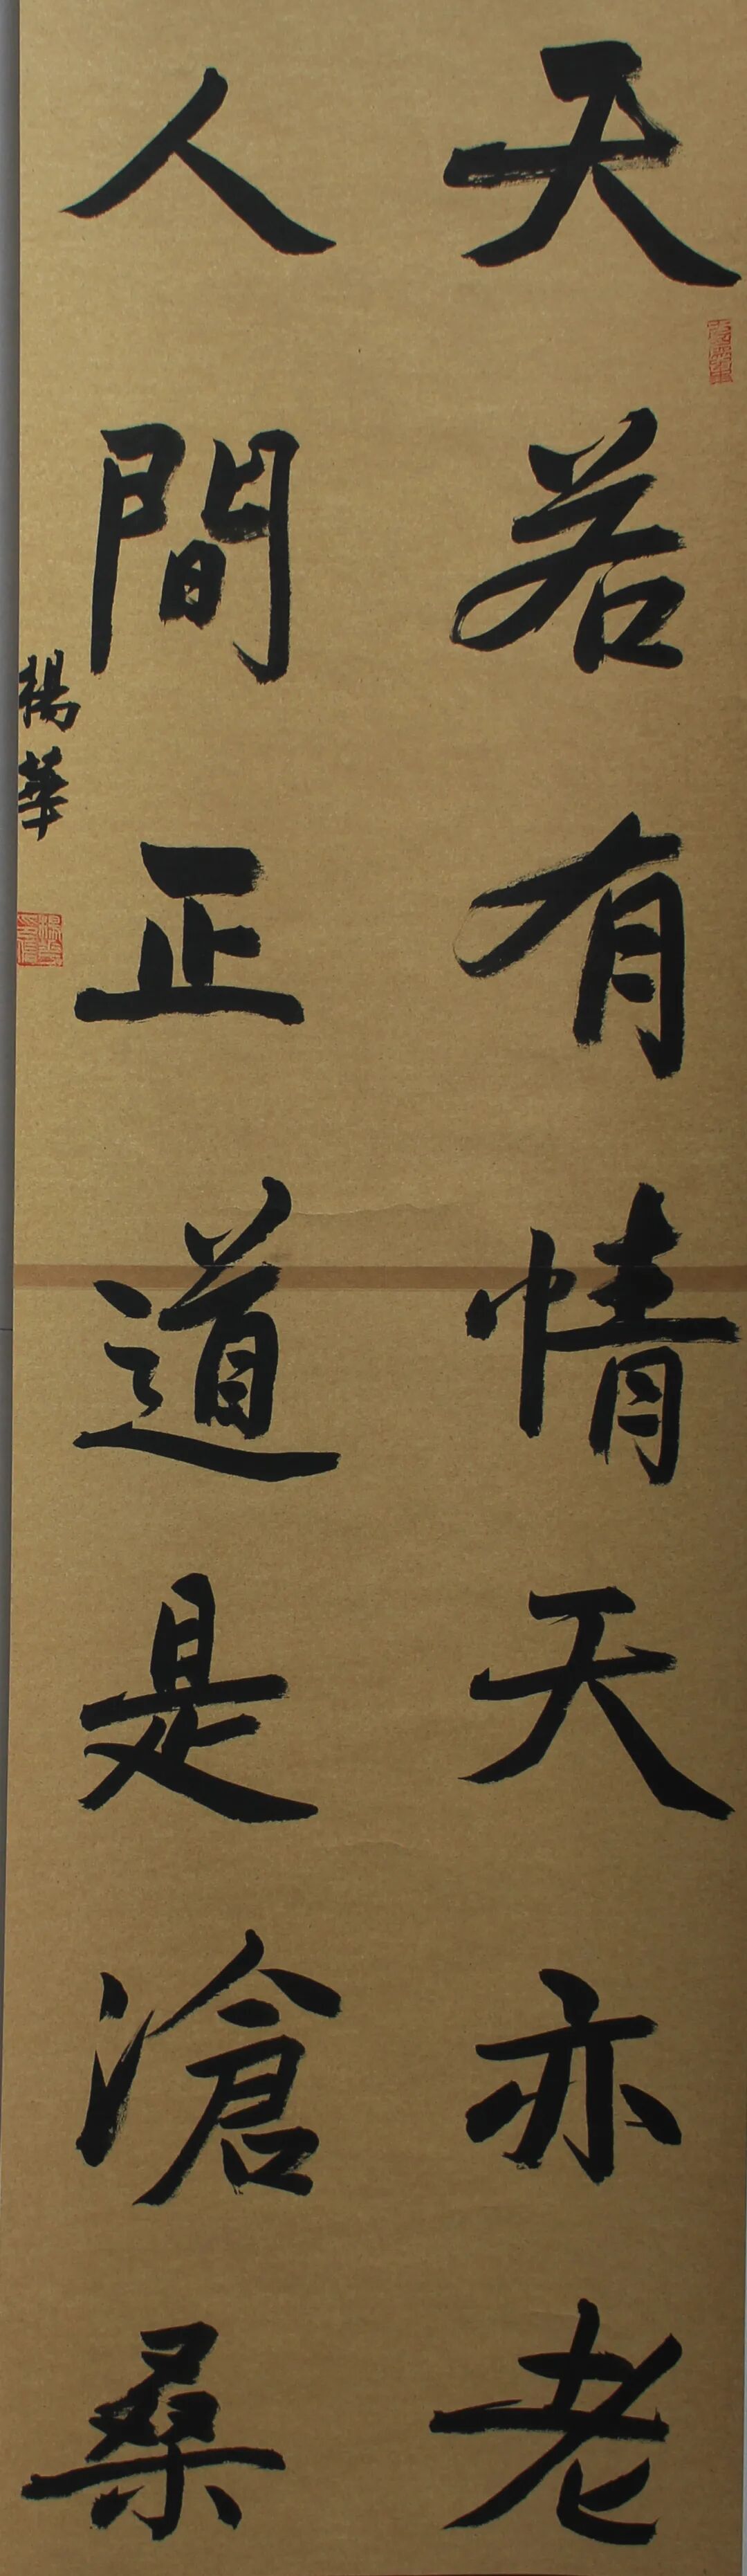 天若有情天亦老
人間正道是滄桑
楊華